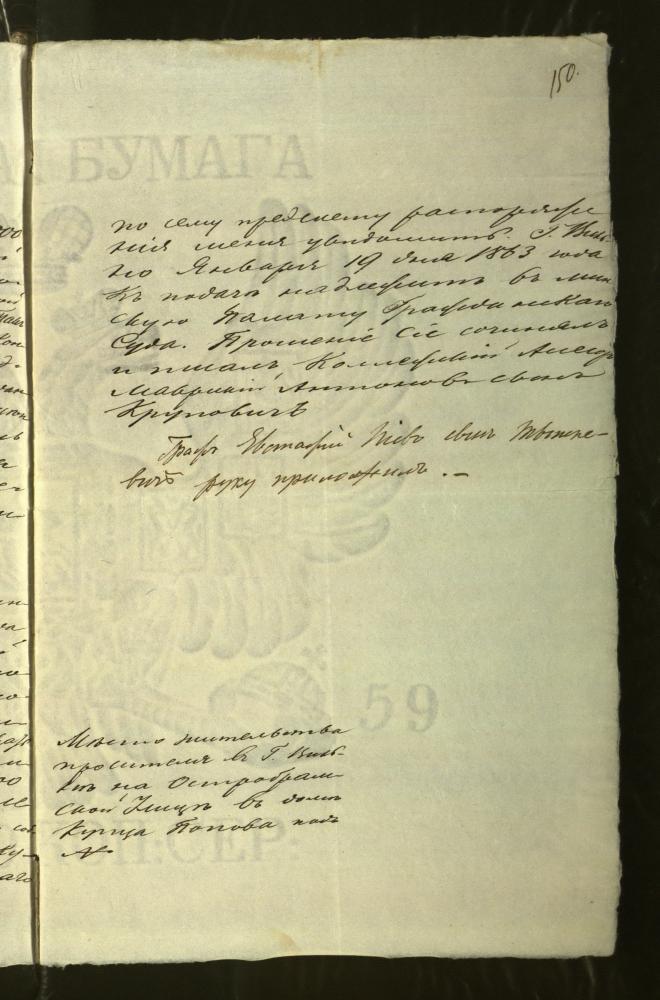 150.
БУМАГА
по сему предмету распоряже
нія меня увѣдомить. Г. Виль-
но Января 19 дня 1863 года
Къ подачѣ надлежитъ въ Мин
скую Палату Гражданскаго
Суда. Прошеніе сіе сочинялъ
и писалъ Коллежскій Ассесоръ
Маврикій Антоновъ сынъ
Круповичъ
Графъ Евстафій сынъ Тышке-
вичъ руку приложилъ. –
59
Мѣсто жительства
просителя въ Г. Виль-
нѣ на Остробрам-
ской Улицѣ въ домѣ
Купца Попова подъ
№
СЕР: